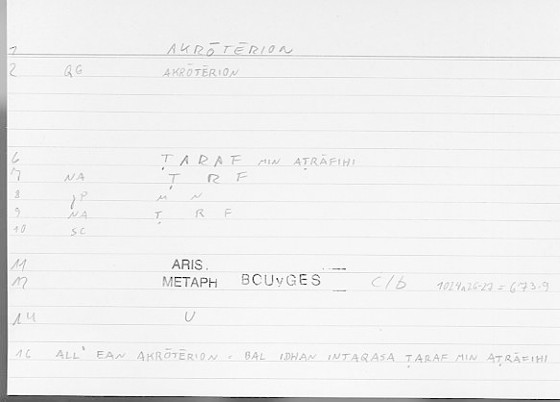 1 AKRŌTĒRION
2 QG AKRŌTĒRION
6 ṬARAF MIN AṬRĀFIHI
7 NA Ṭ R F
8 γP M N
9 NA Ṭ R F
10 SC
11 ARIS.
12 METAPH BOUYGES C/b 1024a26-27 = 673.9
14 U
16 ALL' EAN AKRŌTĒRION . BAL IDHAN INTAQASA ṬARAF MIN AṬRĀFIHI